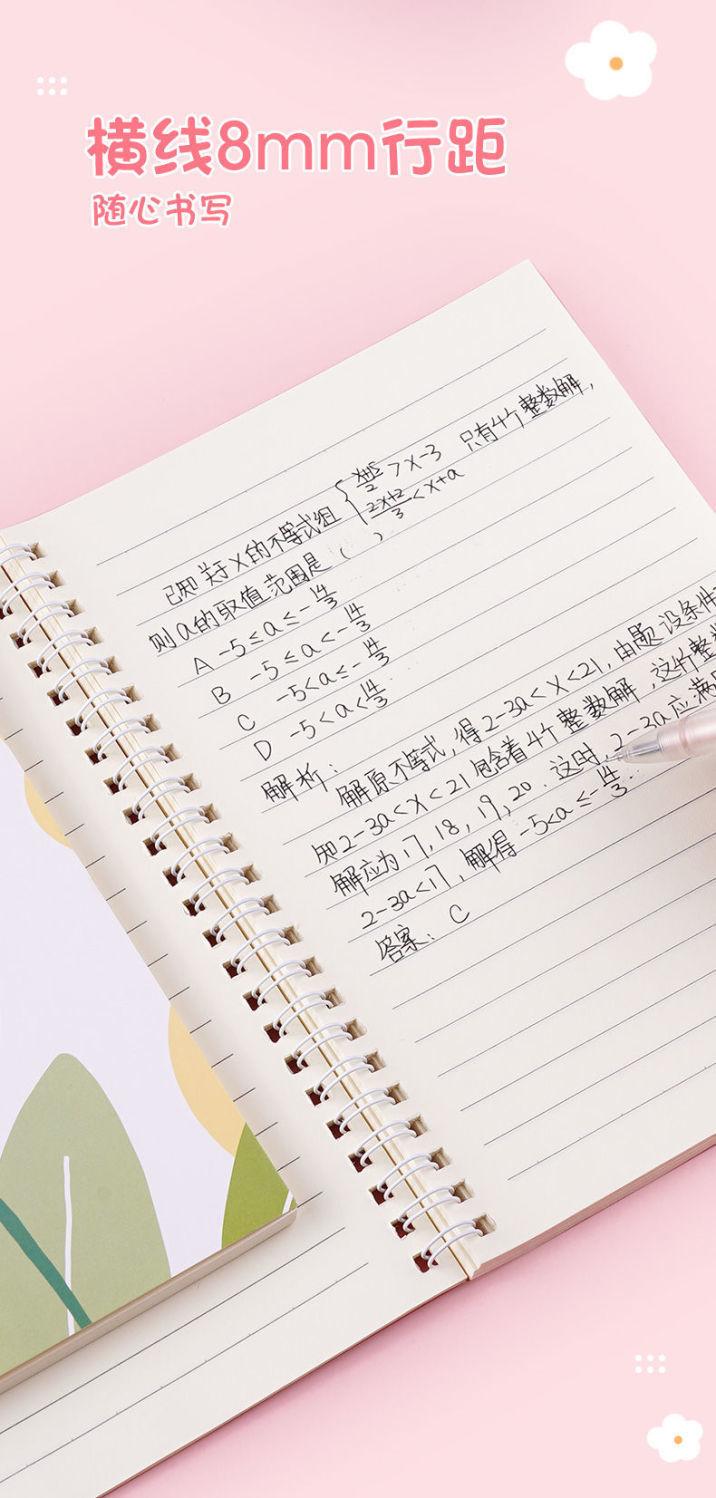 横线8mm行距
随心书写
已知关于x的不等式组 { x+5/2 > x-3 只有4个整数解,
2x+2/3 < x+a
则a的取值范围是( )
A -5≤a≤-14/3
B -5≤a<-14/3
C -5<a≤-14/3
D -5<a<14/3
解析:
解原不等式,得2-3a<x<21,由题设条件
知2-3a<x<21包含着4个整数解,这4个整数
解应为17,18,19,20.这时,2-3a应满
2-3a<17,解得-5<a≤-14/3.
答案:C